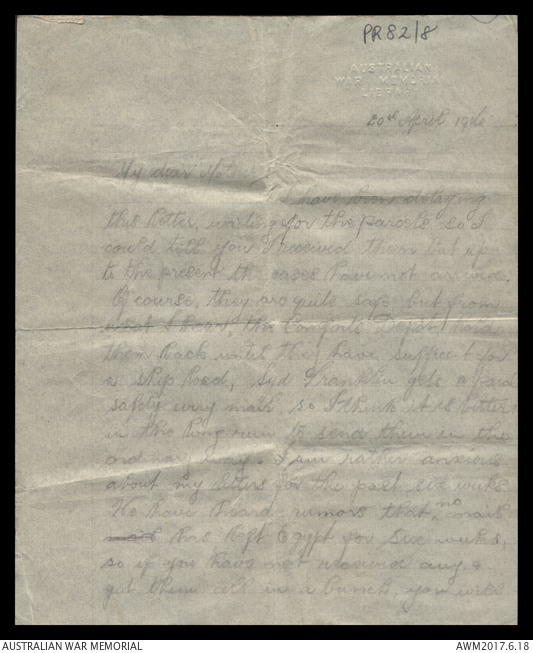 PR82/8
AUSTRALIAN
WAR MEMORIAL
LIBRARY
20th April 1916
My dear
I have been delaying
this letter, waiting for the parcels so I
could tell you I received them but up
to the present the cases have not arrived.
Of course, they are quite safe but from
what I hear, the Comforts Depot hold
them back until they have sufficient for
a ship load, Syd Franklin gets a parcel
safely every mail, so I think it is better
in the long run to send them in the
ordinary way. I am rather anxious
about my letters for the past six weeks
We have heard rumors that no mail
has left Egypt for six weeks,
so if you have not received any &
get them all in a bunch, you will
AUSTRALIAN WAR MEMORIAL
AWM2017.6.18